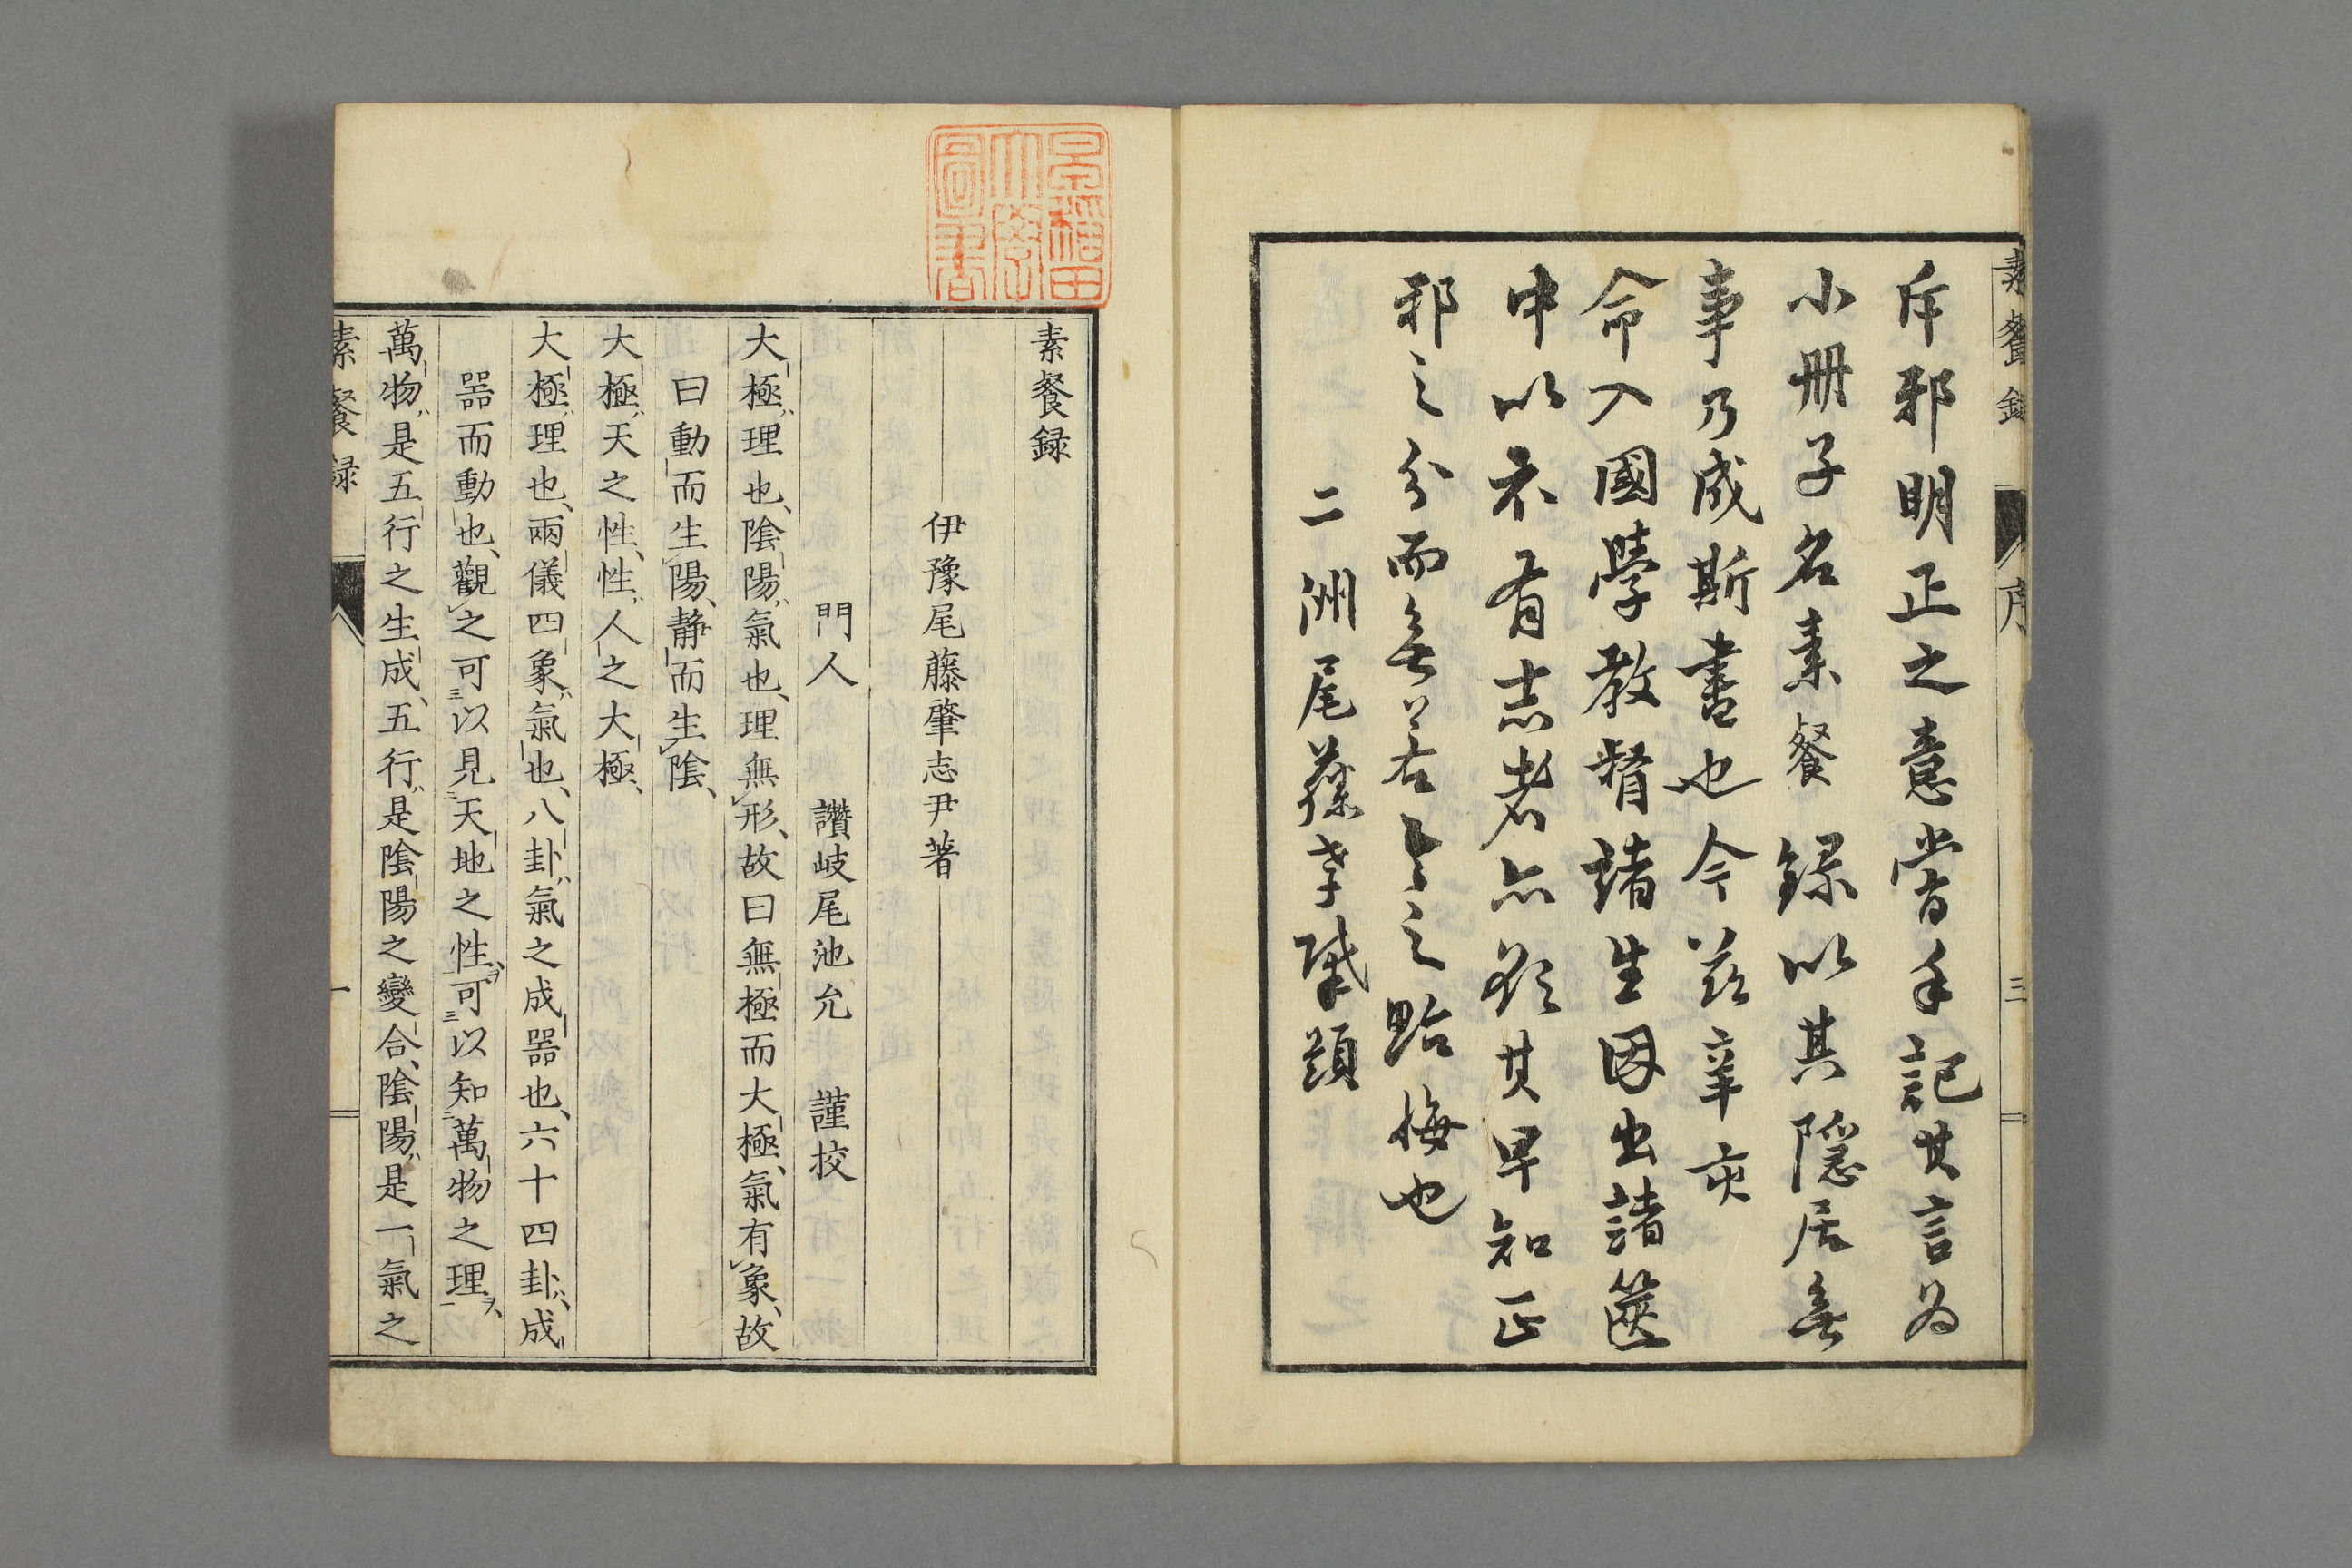 素餐録 序 三
斥邪明正之意嘗手記其言為
小冊子名素餐録以其隠居無
事乃成斯書也今茲辛亥
命入國學教督諸生因出諸篋
中以示有志者亦欲其早知正
邪之分而無若之貽悔也
二洲尾藤孝肇題
早稲田大學圖書
素餐録
伊豫尾藤肇志尹著
門人 讚岐尾池允 謹挍
大極理也、陰陽氣也、理無形、故曰無極而大極、氣有象、故
曰動而生陽、静而生陰、
大極天之性、性人之大極、
大極理也、兩儀四象氣也、八卦氣之成噐也、六十四卦、成
噐而動也、觀之可以見天地之性、可以知萬物之理、
萬物是五行之生成、五行是陰陽之變合、陰陽是一氣之
素餐録 一